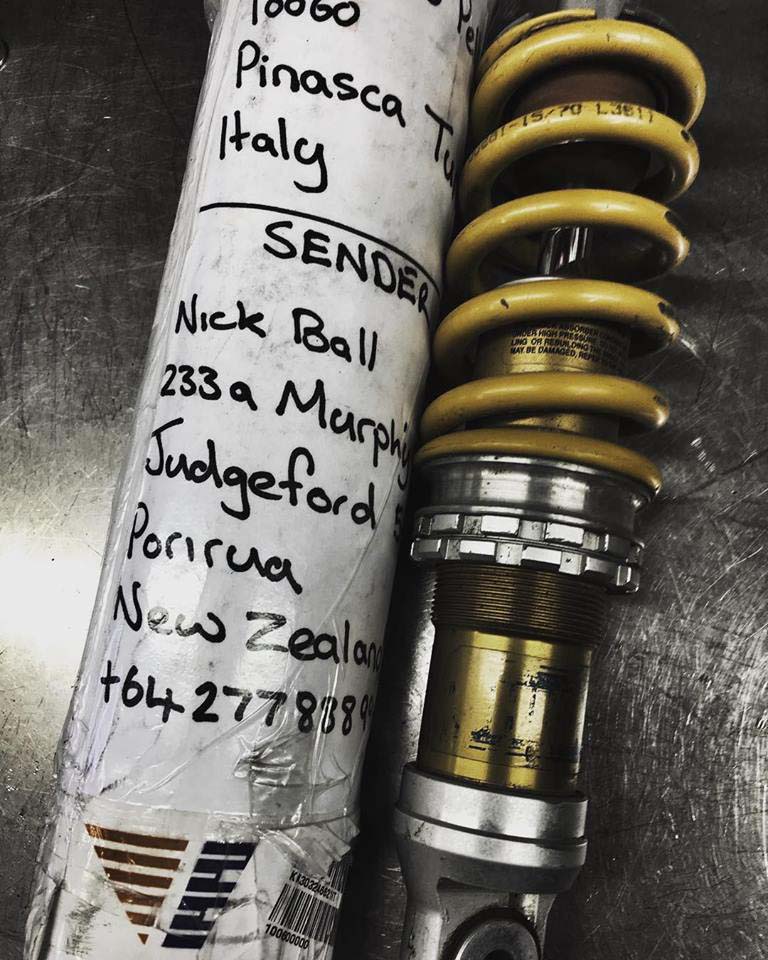 10060
Pinasca
Italy
SENDER
Nick Ball
233a Murphy
Judgeford
Porirua
New Zealand
+64 2778889
15/70 L3611
ABSORBER
UNDER HIGH PRESSURE.
LING OR REBUILDING
MAY BE DAMAGED,